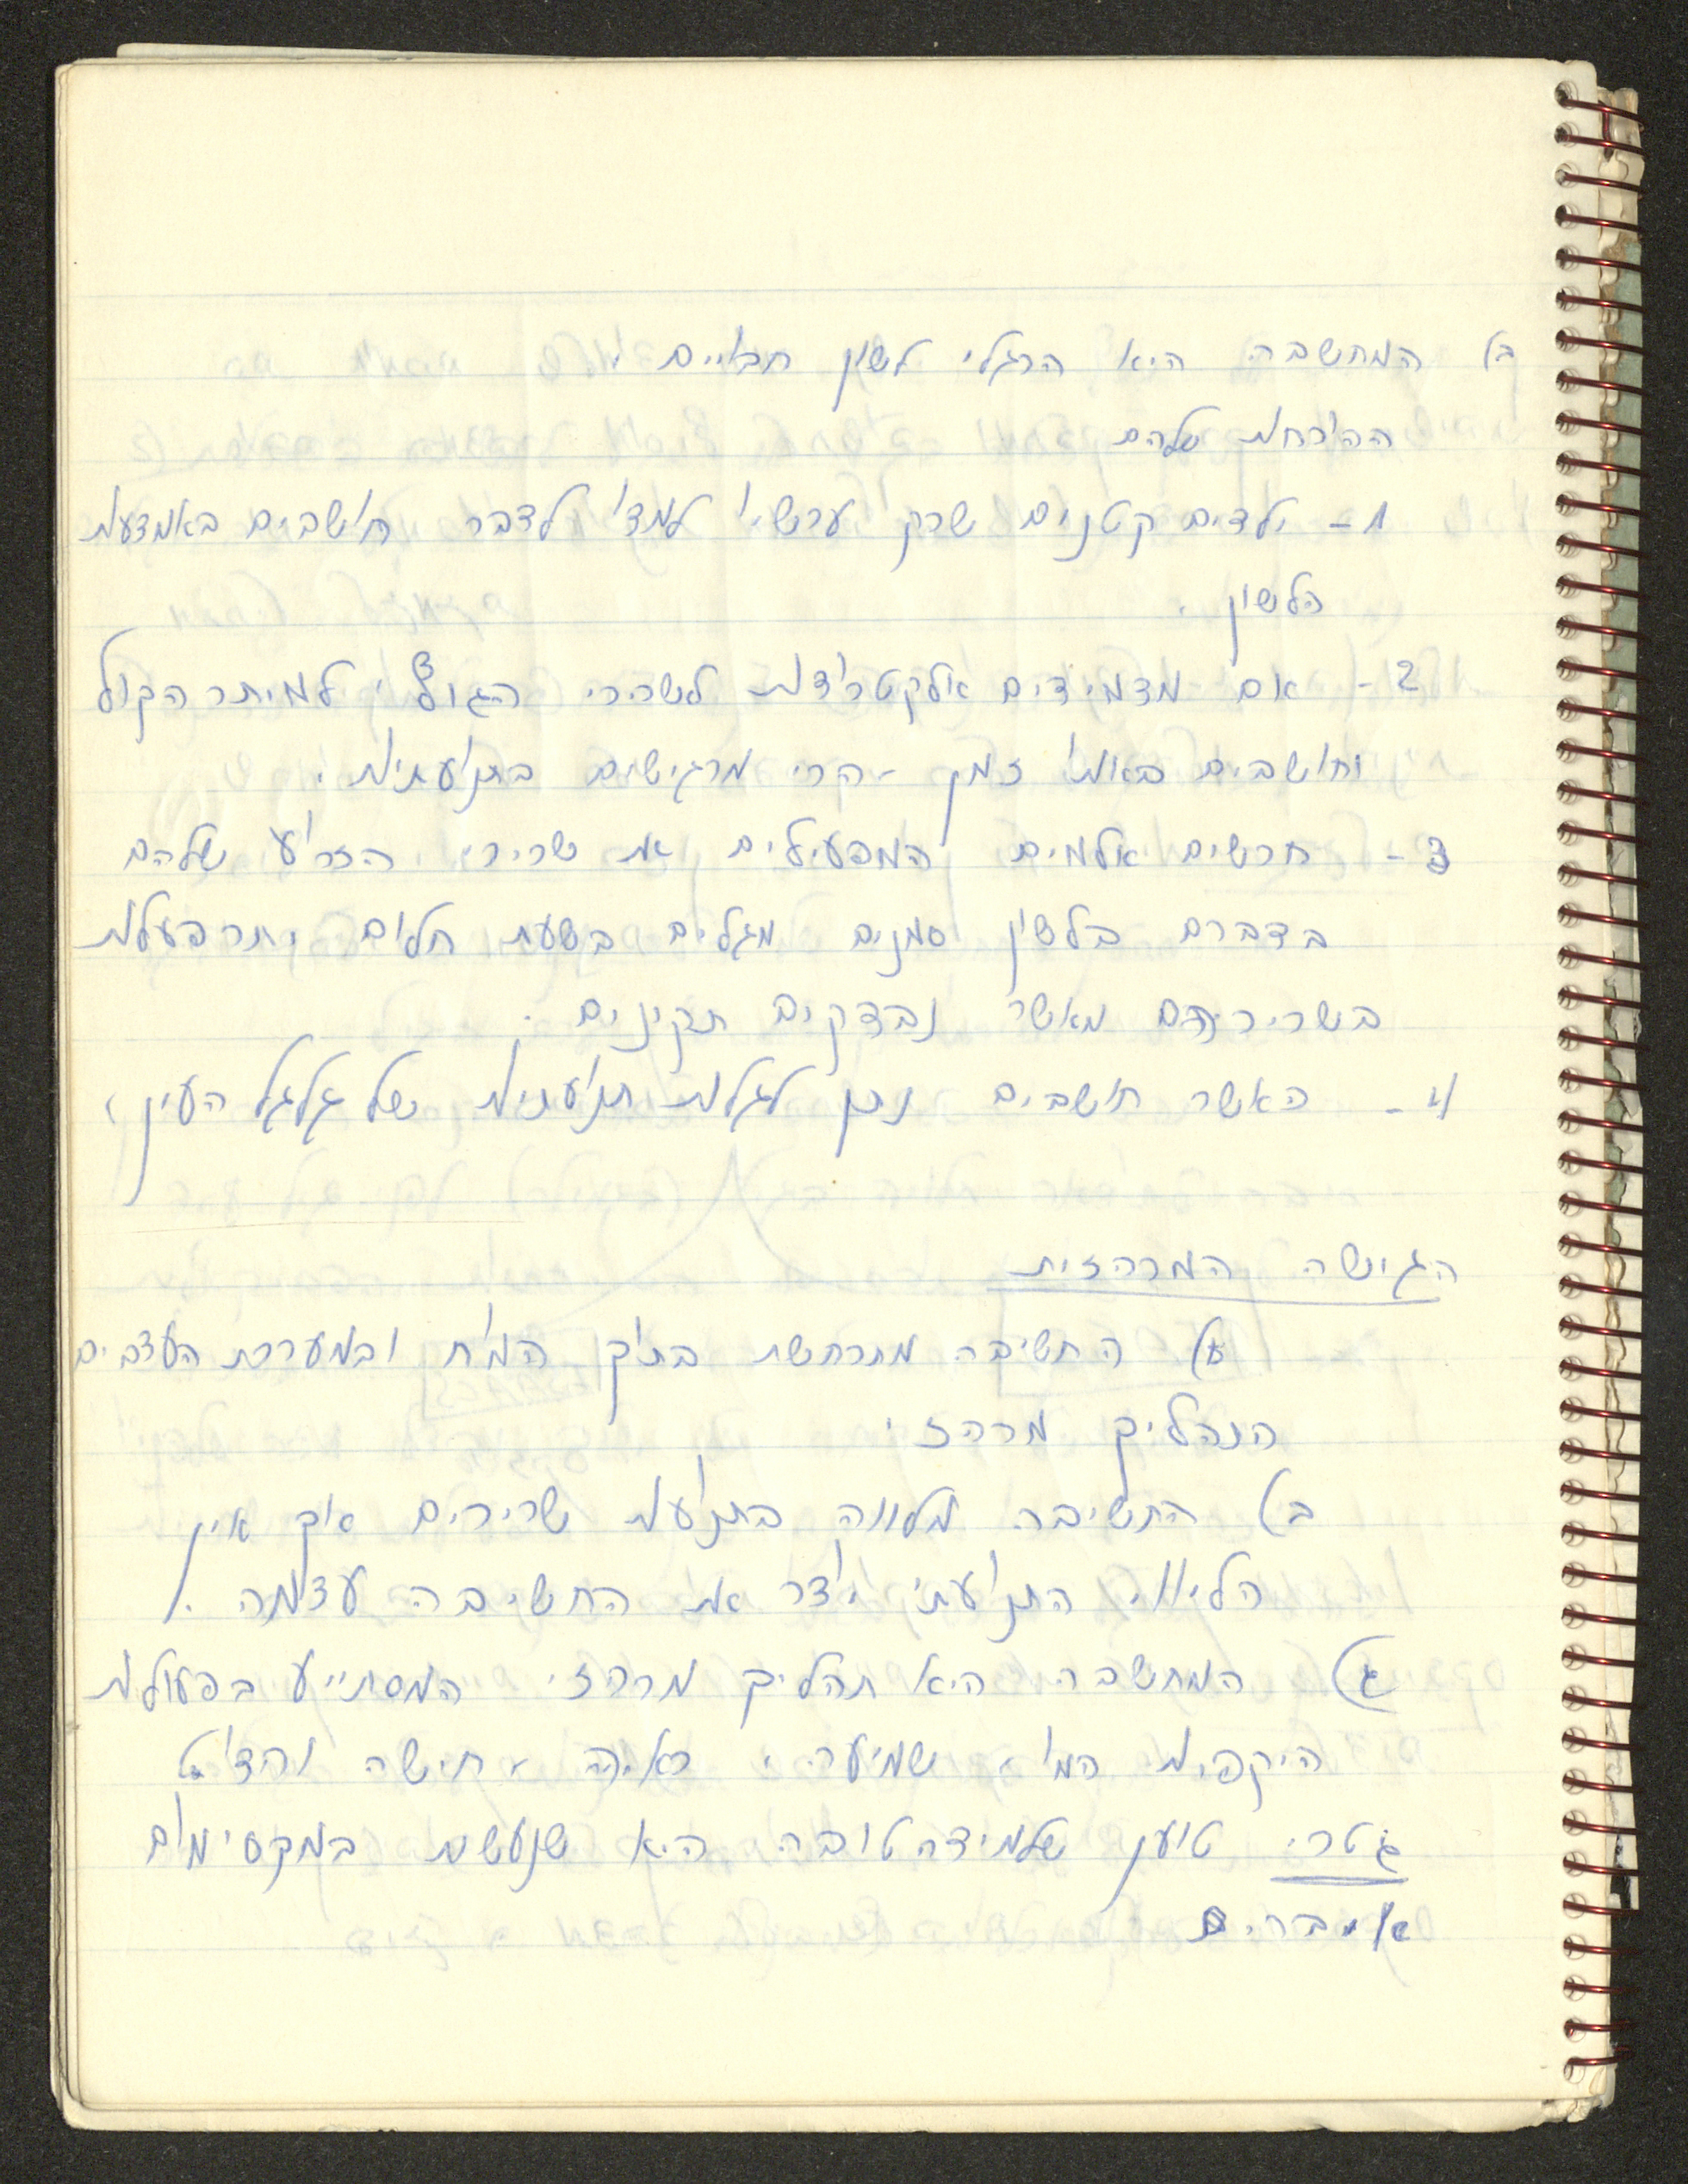 ב) המחשבה היא הרגלי לשון חבויים.
ההוכחות שלהם
1- ילדים קטנים שרק עכשיו למדו לדבר חושבים באמצעות
הלשון.
2- אם מצמידים אלקטרודות לשרירי הגוף למיתר הקול
וחושבים באותו זמן - הרי מרגישים בתנועתיות.
3- חרשים אלמים המפעילים את שרירי הזרוע שלהם
בדברם בלשון סמנים מגלים בשעת חלום יתר פעלות
בשריריהם מאשר נבדקים תקינים.
4- כאשר חושבים ניתן לגלות תנועתיות של גלגל העין,
הגישה המרכזית
א) החשיבה מתרחשת בתוך המוח ובמערכת העצבים
תהליך מרכזי
ב) החשיבה מלווה בתנועת שרירים אך אין
הליווי התנועתי יוצר את החשיבה עצמה.
ג) המחשבה היא תהליך מרכזי המסתייע בפעולות
היקפיות כמו שמיעה, ראיה, חישה וכד'
גטרי טוען שלמידה טובה היא שנעשת במקסימום
אברים